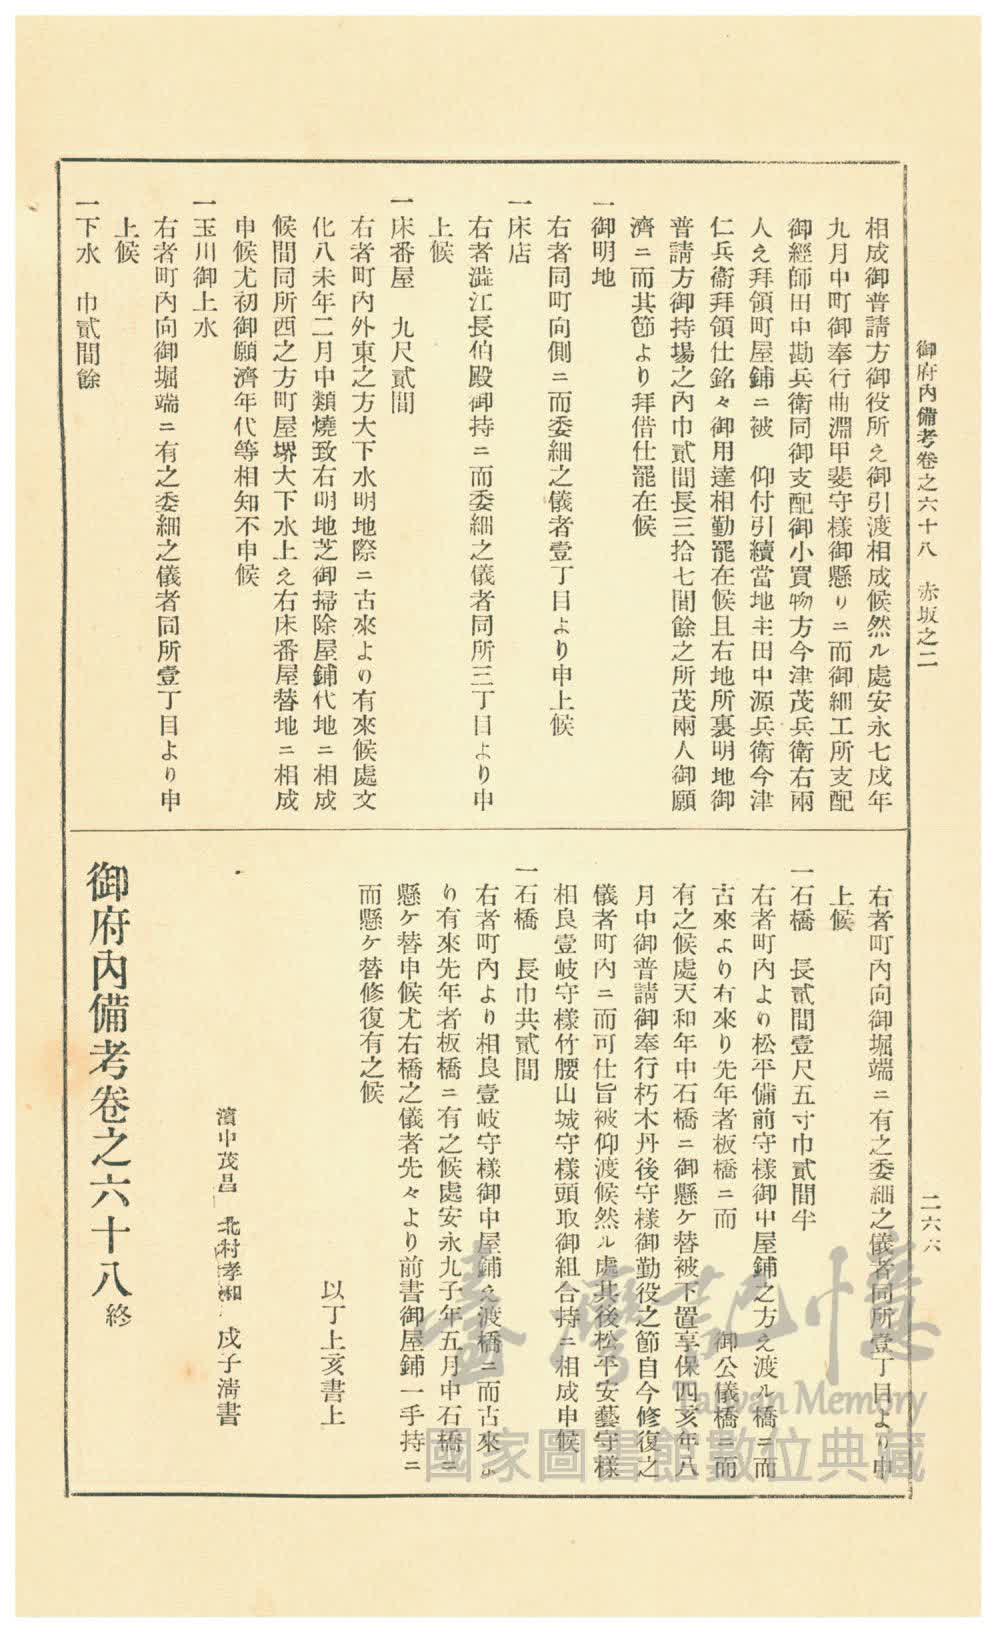 御府內備考卷之六十八　赤坂之二
二六六
相成御普請方御役所え御引渡相成候然ル處安永七戌年
九月中町御奉行曲淵甲斐守樣御懸リニ而御細工所支配
御經師田中勘兵衛同御支配御小買物方今津茂兵衛右兩
人え拜領町屋鋪ニ被　仰付引續當地主田中源兵衛今津
仁兵衞拜領仕銘々御用達相勤罷在候且右地所裏明地御
普請方御持場之內巾貳間長三拾七間餘之所茂兩人御願
濟ニ而其節より拜借仕罷在候
一御明地
右者同町向側ニ而委細之儀者壹丁目より申上候
一床店
右者澁江長伯殿御持ニ而委細之儀者同所三丁目より申
上候
一床番屋　九尺貳間
右者町內外東之方大下水明地際ニ古來より有來候處文
化八未年二月中類燒致右明地芝御掃除屋鋪代地ニ相成
候間同所西之方町屋堺大下水上え右床番屋替地ニ相成
申候尤初御願濟年代等相知不申候
一玉川御上水
右者町內向御堀端ニ有之委細之儀者同所壹丁目より申
上候
一下水　巾貳間餘
右者町內向御堀端ニ有之委細之儀者同所壹丁目より申
上候
一石橋　長貳間壹尺五寸巾貳間半
右者町內より松平備前守樣御中屋鋪之方え渡ル橋ニ而
古來より有來り先年者板橋ニ而　　　御公儀橋ニ而
有之候處天和年中石橋ニ御懸ケ替被下置享保四亥年八
月中御普請御奉行朽木丹後守樣御勤役之節自今修復之
儀者町內ニ而可仕旨被仰渡候然ル處其後松平安藝守樣
相良壹岐守樣竹腰山城守樣頭取御組合持ニ相成申候
一石橋　長巾共貳間
右者町內より相良壹岐守樣御中屋鋪え渡橋ニ而古來よ
り有來先年者板橋ニ有之候處安永九子年五月中石橋ニ
懸ケ替申候尤右橋之儀者先々より前書御屋鋪一手持ニ
而懸ケ替修復有之候
以丁上亥書上
濱中茂昌　北村孝　戌子淸書
御府內備考卷之六十八終
臺灣記憶
Taiwan Memory
國家圖書館數位典藏